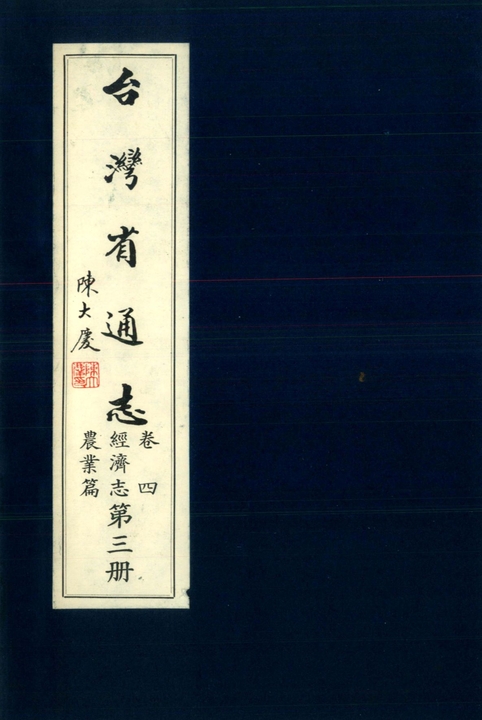 台灣省通志
卷四
經濟志第三册
農業篇
陳大慶